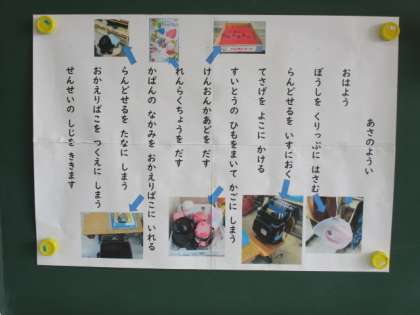 あさのようい
おはよう
ぼうしを くりっぷに はさむ
らんどせるを いすにおく
てさげを よこに かける
すいとうの ひもをまいて かごに しまう
けんおんかあどを だす
れんらくちょうを だす
かばんの なかみを おかえりばこに いれる
らんどせるを たなに しまう
おかえりばこを つくえに しまう
せんせいの しじを ききます